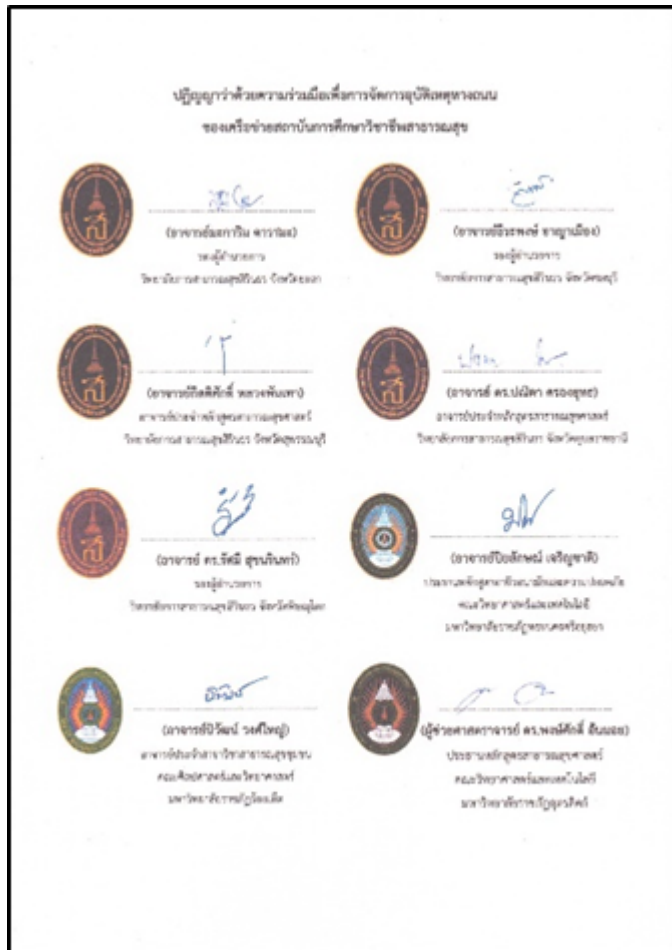 ปฏิญญาว่าด้วยความร่วมมือเพื่อการจัดการอุบัติเหตุทางถนน
ของเครือข่ายสถาบันการศึกษาวิชาชีพสาธารณสุข
(อาจารย์มะการิม ดารามะ)
รองผู้อำนวยการ
วิทยาลัยการสาธารณสุขสิรินธร จังหวัดยะลา
(อาจารย์ธีระพงษ์ อาญาเมือง)
รองผู้อำนวยการ
วิทยาลัยการสาธารณสุขสิรินธร จังหวัดชลบุรี
(อาจารย์กิตติศักดิ์ หลวงพันเทา)
อาจารย์ประจำหลักสูตรสาธารณสุขศาสตร์
วิทยาลัยการสาธารณสุขสิรินธร จังหวัดสุพรรณบุรี
(อาจารย์ ดร.ปณิตา ครองยุทธ)
อาจารย์ประจำหลักสูตรสาธารณสุขศาสตร์
วิทยาลัยการสาธารณสุขสิรินธร จังหวัดอุบลราชธานี
(อาจารย์ ดร.รัศมี สุขนรินทร์)
รองผู้อำนวยการ
วิทยาลัยการสาธารณสุขสิรินธร จังหวัดพิษณุโลก
(อาจารย์ปิยลักษณ์ เจริญชาติ)
ประธานหลักสูตรอาชีวอนามัยและความปลอดภัย
คณะวิทยาศาสตร์และเทคโนโลยี
มหาวิทยาลัยราชภัฏพระนครศรีอยุธยา
(อาจารย์ปิวัฒน์ วงศ์ใหญ่)
อาจารย์ประจำสาขาวิชาสาธารณสุขชุมชน
คณะศิลปศาสตร์และวิทยาศาสตร์
มหาวิทยาลัยราชภัฏร้อยเอ็ด
(ผู้ช่วยศาสตราจารย์ ดร.พงษ์ศักดิ์ อ้นมอย)
ประธานหลักสูตรสาธารณสุขศาสตร์
คณะวิทยาศาสตร์และเทคโนโลยี
มหาวิทยาลัยราชภัฏอุตรดิตถ์